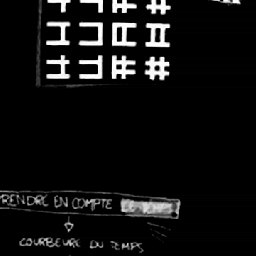 PRENDRE EN COMPTE LE TEMPS
COURBEURE DU TEMPS